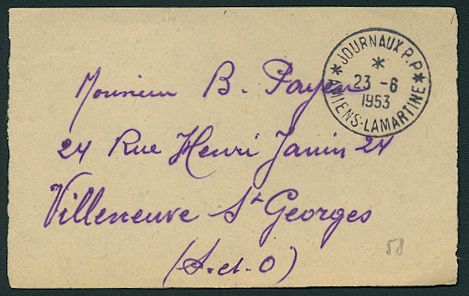 JOURNAUX P.P
23 -6
1953
AMIENS-LAMARTINE
Monsieur B. Payen
24 Rue Henri Janin 24
Villeneuve St Georges
(S.et.O)
58